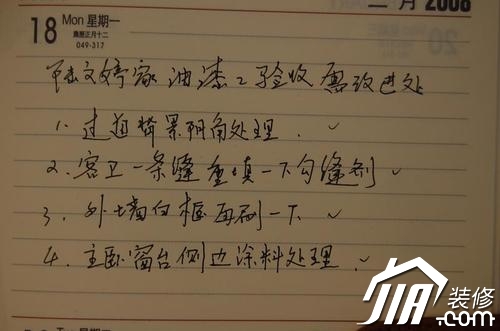 二月 2008
18 Mon 星期一
农历正月十二
049-317
陆文婷家油漆工验收需改进处
1. 过道背景阴角处理. ✓
2. 客卫一条缝重填一下勾缝剂 ✓
3. 外墙白框再刷一下. ✓
4. 主卧窗台侧边涂料处理. ✓
JIA装修.com
星期二